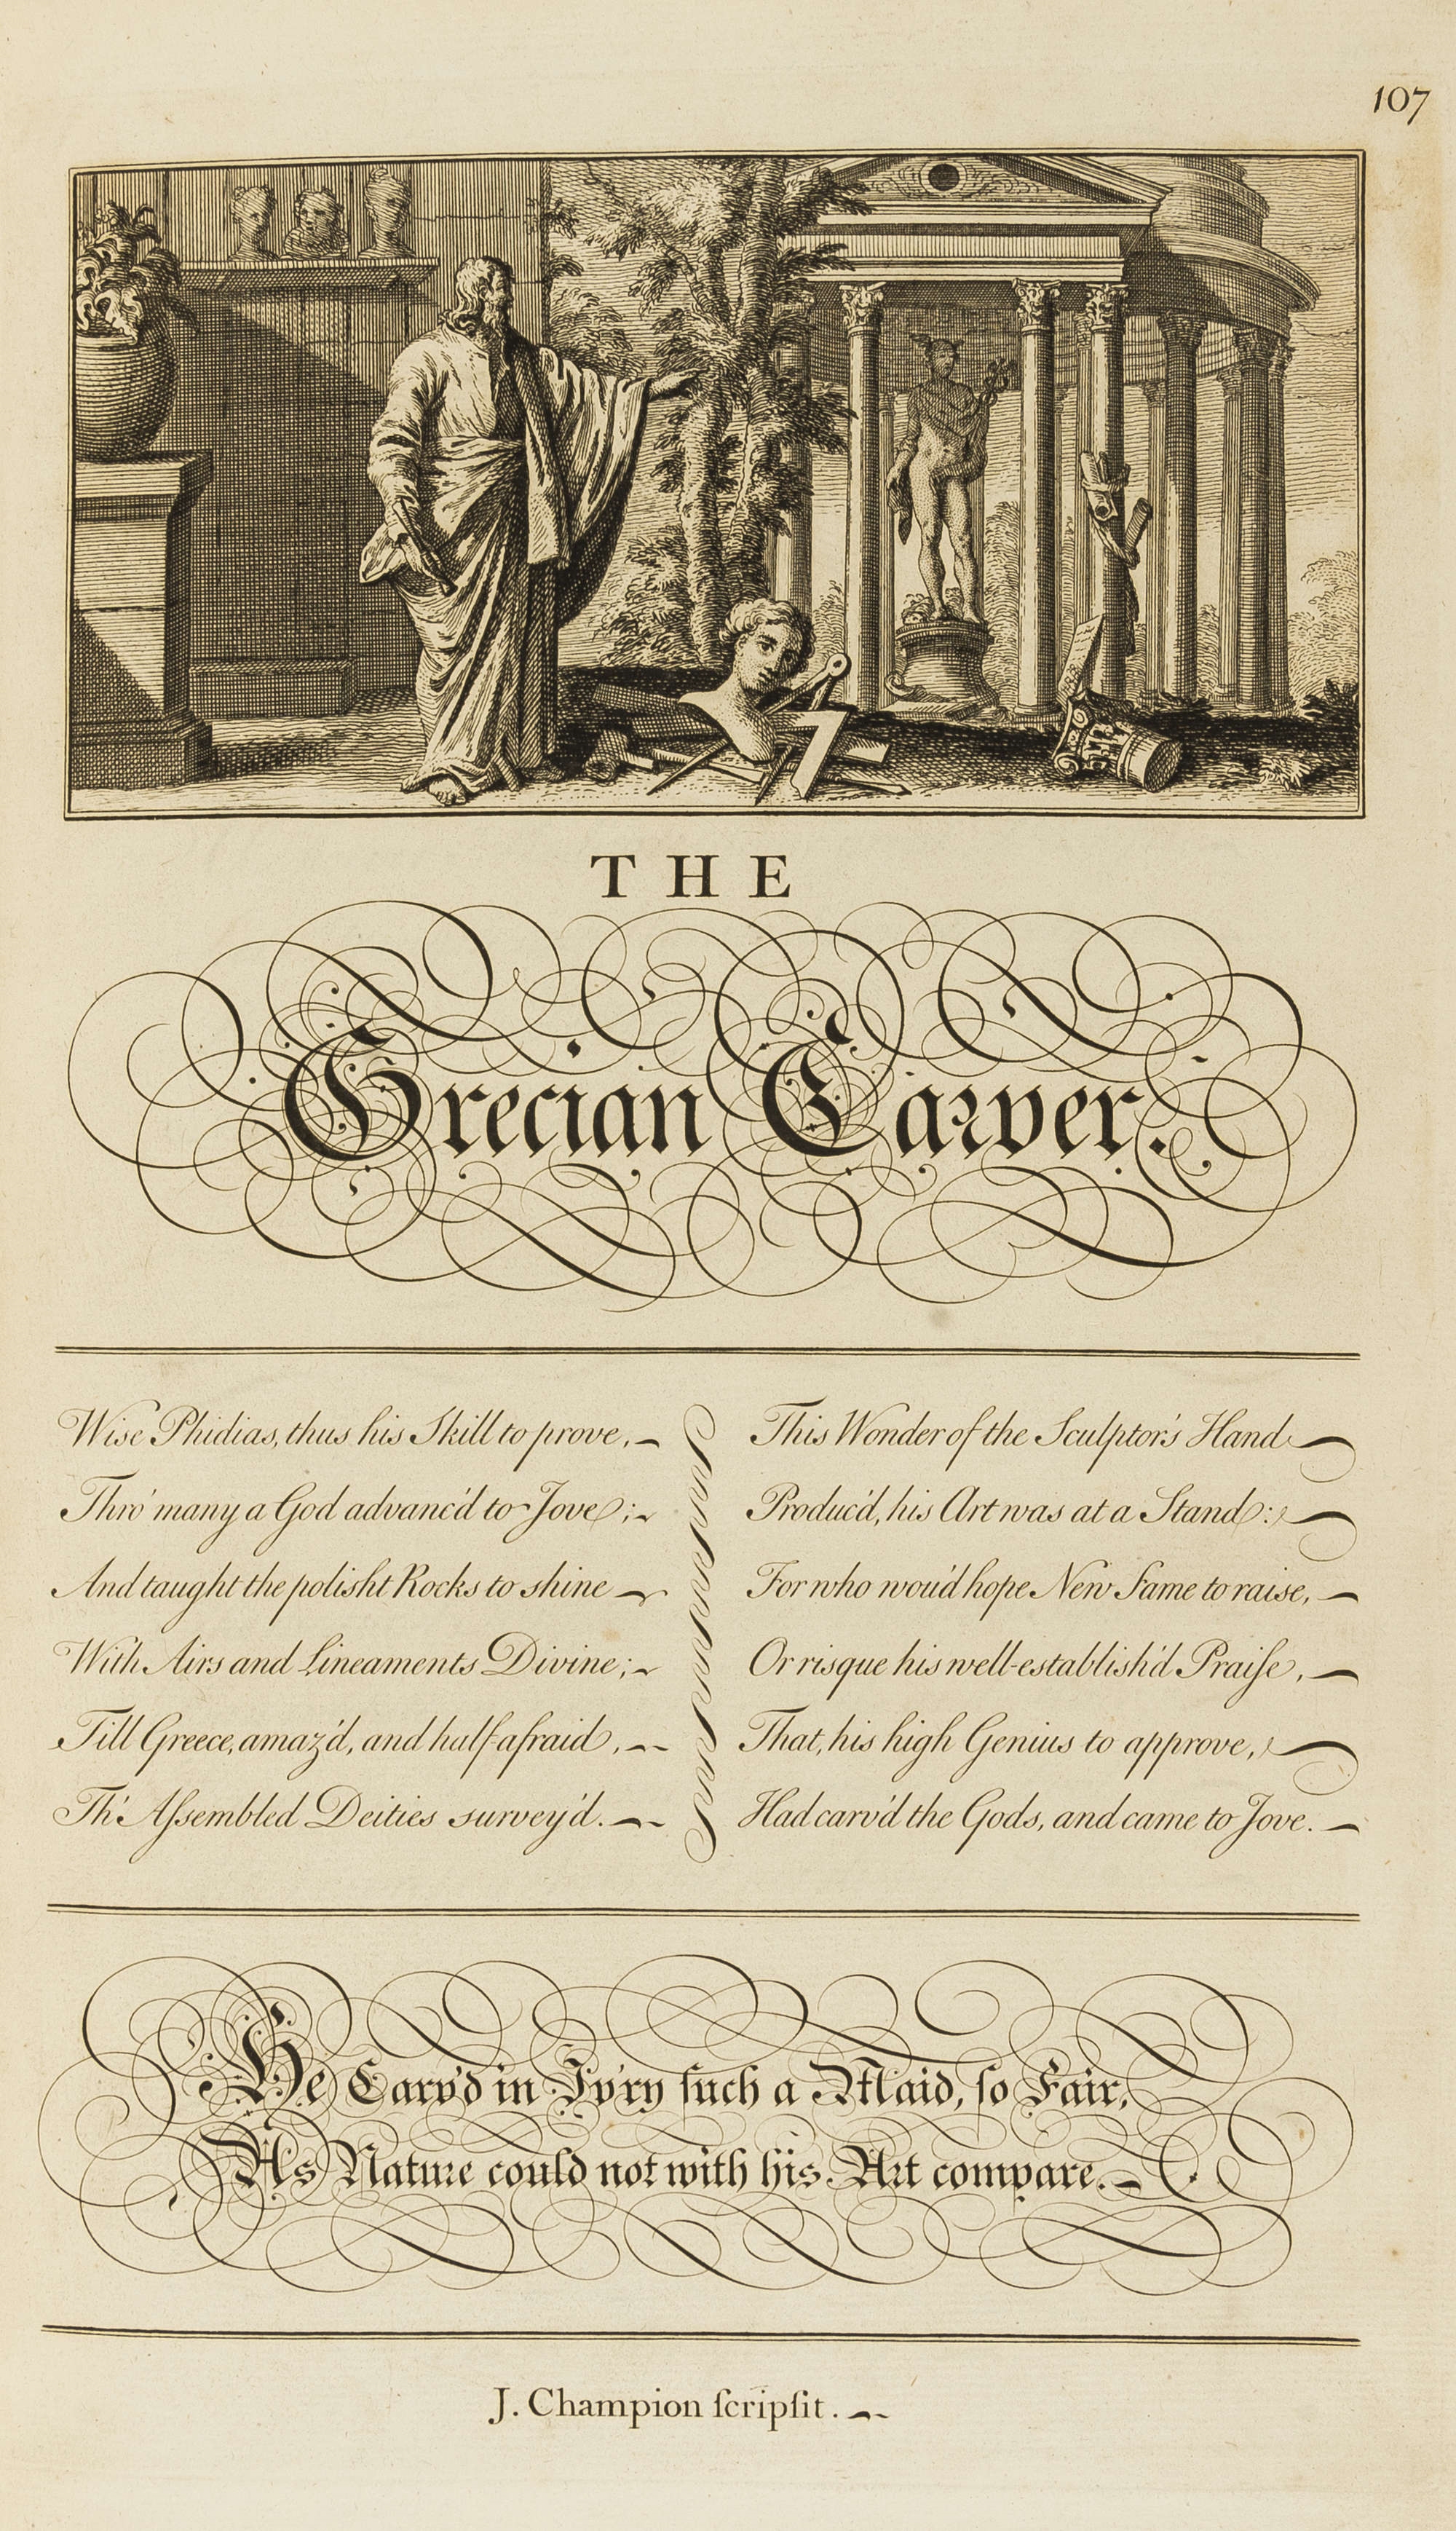 107
THE
Grecian Carver.
Wise Phidias, thus his Skill to prove,
Thro' many a God advanc'd to Jove;
And taught the polisht Rocks to shine
With Airs and Lineaments Divine;
Till Greece, amaz'd, and half-afraid,
Th' Aſsembled Deities survey'd.
This Wonder of the Sculptor's Hand
Produc'd, his Art was at a Stand:
For who wou'd hope New Fame to raise,
Or risque his well-establish'd Praiſe,
That, his high Genius to approve,
Had carv'd the Gods, and came to Jove.
He Carv'd in Iv'ry ſuch a Maid, ſo Fair,
As Nature could not with his Art compare.
J. Champion ſcripſit.